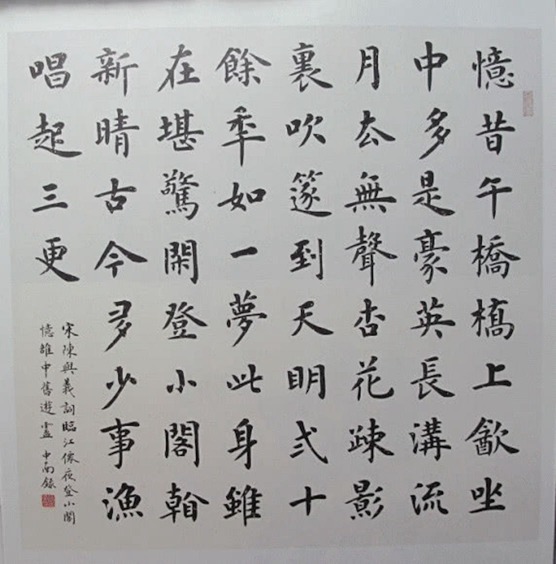 憶昔午橋橋上㱃坐
中多是豪英長溝流
月去無聲杏花疎影
裏吹篴到天明弍十
餘秊如一夢此身雖
在堪驚閑登小閣看
新晴古今多少事漁
唱起三更
宋陳與義詞臨江僊夜登小閣
憶雒中舊遊 盧中南錄